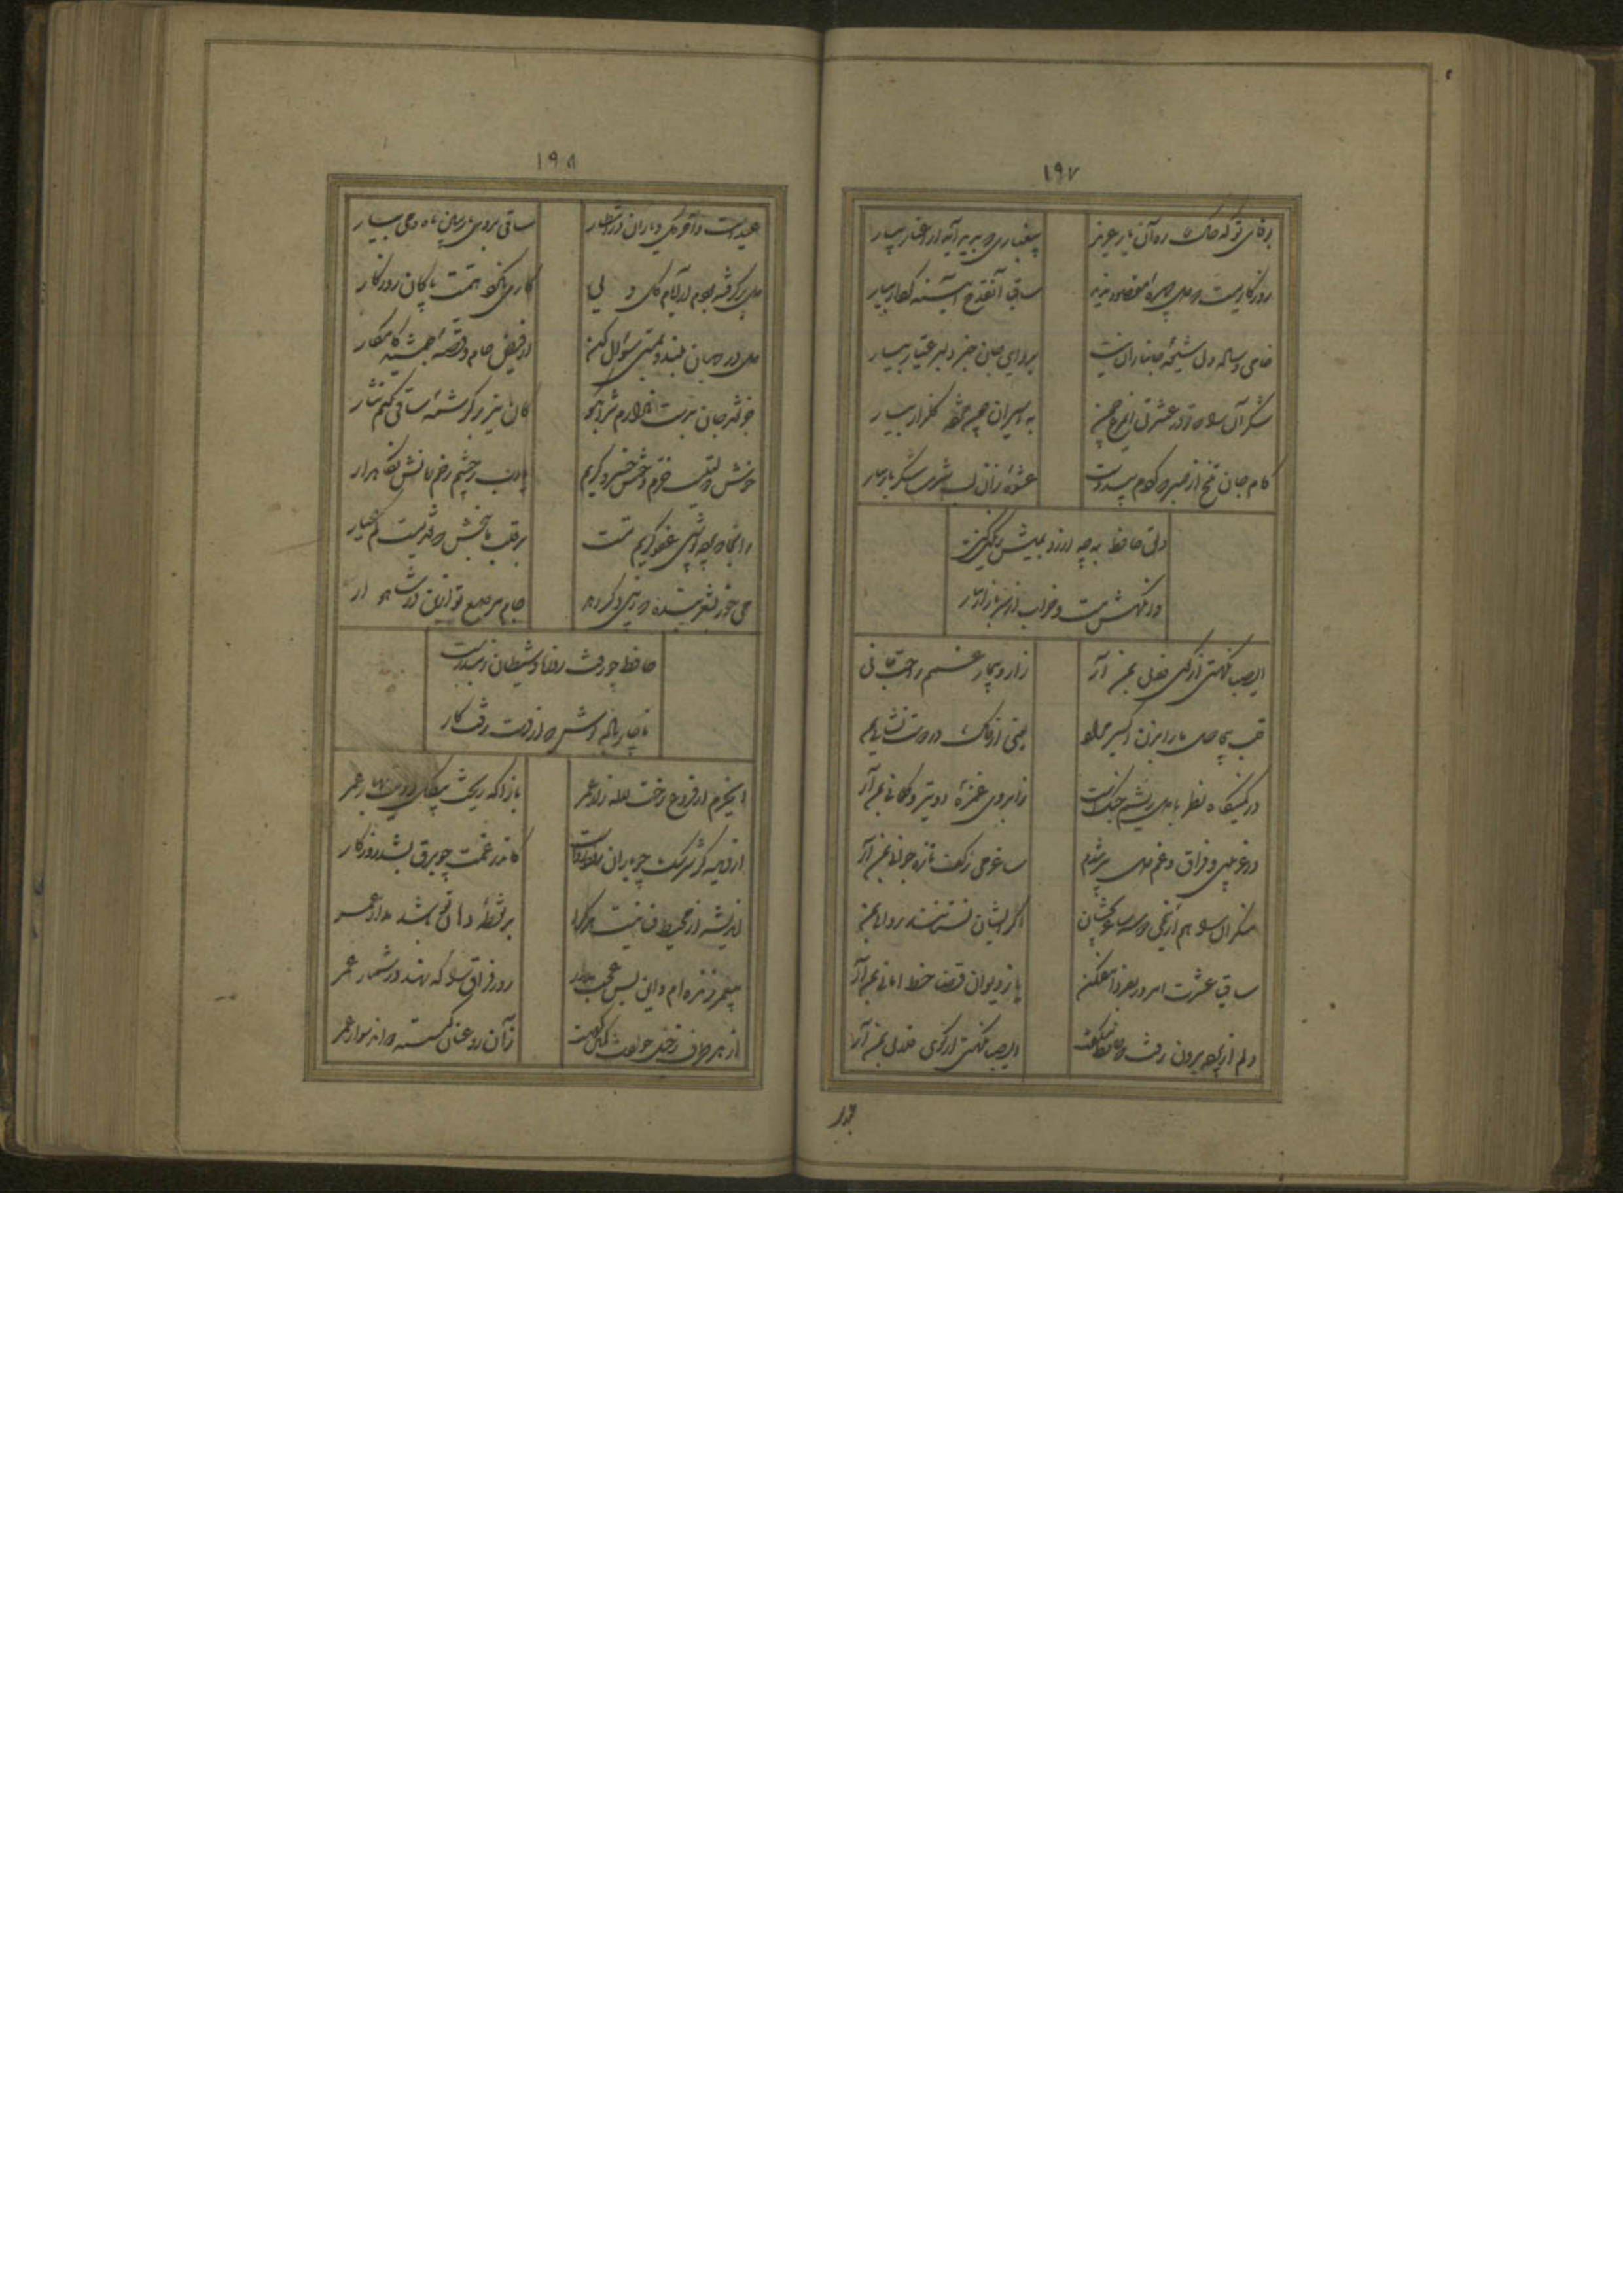 ۱۹۷
بوفای تو که خاک ره آن یار عزیز
بی غباری که پدید آید از اغیار بیار
روزگاریست که دل چهره مقصود ندید
ساقیا آن قدح آینه کردار بیار
خامی و ساده دلی شیوه جانبازان نیست
خبری از بر دلبر عیار بیار
شکر آن را که تو در عشرتی ای مرغ چمن
به اسیران قفس مژده گلزار بیار
کام جان تلخ شد از صبر که کردم بی دوست
عشوه زان لب شیرین شکربار بیار
دلق حافظ به چه ارزد بمیش رنگین کن
وانگهش مست و خراب از سر بازار بیار
ای صبا نکهتی از کوی فلانی بمن آر
زار و بیمار غمم راحت جانی
قلب بی حاصل ما را بزن اکسیر مراد
یعنی از خاک در دوست نشانی بمن
در کمینگاه نظر با دل خویشم جنگ است
زابروی غمزه او تیر و کمانی بمن آر
در غریبی و فراق و غم دل پیر شدم
ساغر می ز کف تازه جوانی بمن آر
منکران را هم ازین می دو سه ساغر بچشان
اگر ایشان نستانند روانی بمن
ساقیا عشرت امروز بفردا مفکن
یا ز دیوان قضا خط امانی بمن آر
دلم از پرده برون رفت که حافظ میگفت
ای صبا نکهتی از کوی فلانی بمن آر
۱۹۸
عید است و آخر گل و یاران در انتظار
ساقی بروی یار ببین ماه و می بیار
دل برگرفته بودم از ایام گل ولی
کاری بکرد همت پاکان روزگار
دل در جهان مبند و بمستی سوال کن
از فیض جام و قصه جمشید کامکار
جز نقد جان بدست ندارم شراب کو
کان نیز بر کرشمه ساقی کنم نثار
خوش دولتیست خرم و خوش خسرو کریم
یارب ز چشم زخم زمانش نگاهدار
زانجا که پرده پوشی عفو کریم تست
بر قلب ما ببخش که نقدیست کم عیار
می خور بشعر بنده که زیبی دگر دهد
جام مرصع تو بدین در شاهوار
حافظ چو رفت روزه و شیطان
ناچار باده نوش که از دست رفت کار
ای خرم از فروغ رخت لاله زار عمر
بازآ که ریخت بی گل رویت بهار عمر
از دیده گر سرشک چو باران رود رواست
کاندر غمت چو برق بشد روزگار
اندیشه از محیط فنا نیست هرکرا
بر نقطه دهان تو باشد مدار عمر
بیعمر زنده ام و این بس عجب مدار
روز فراق را که نهد در شمار عمر
از هر طرف ز خیل حوادث کمین گهیست
زان رو عنان گسسته دواند سوار عمر